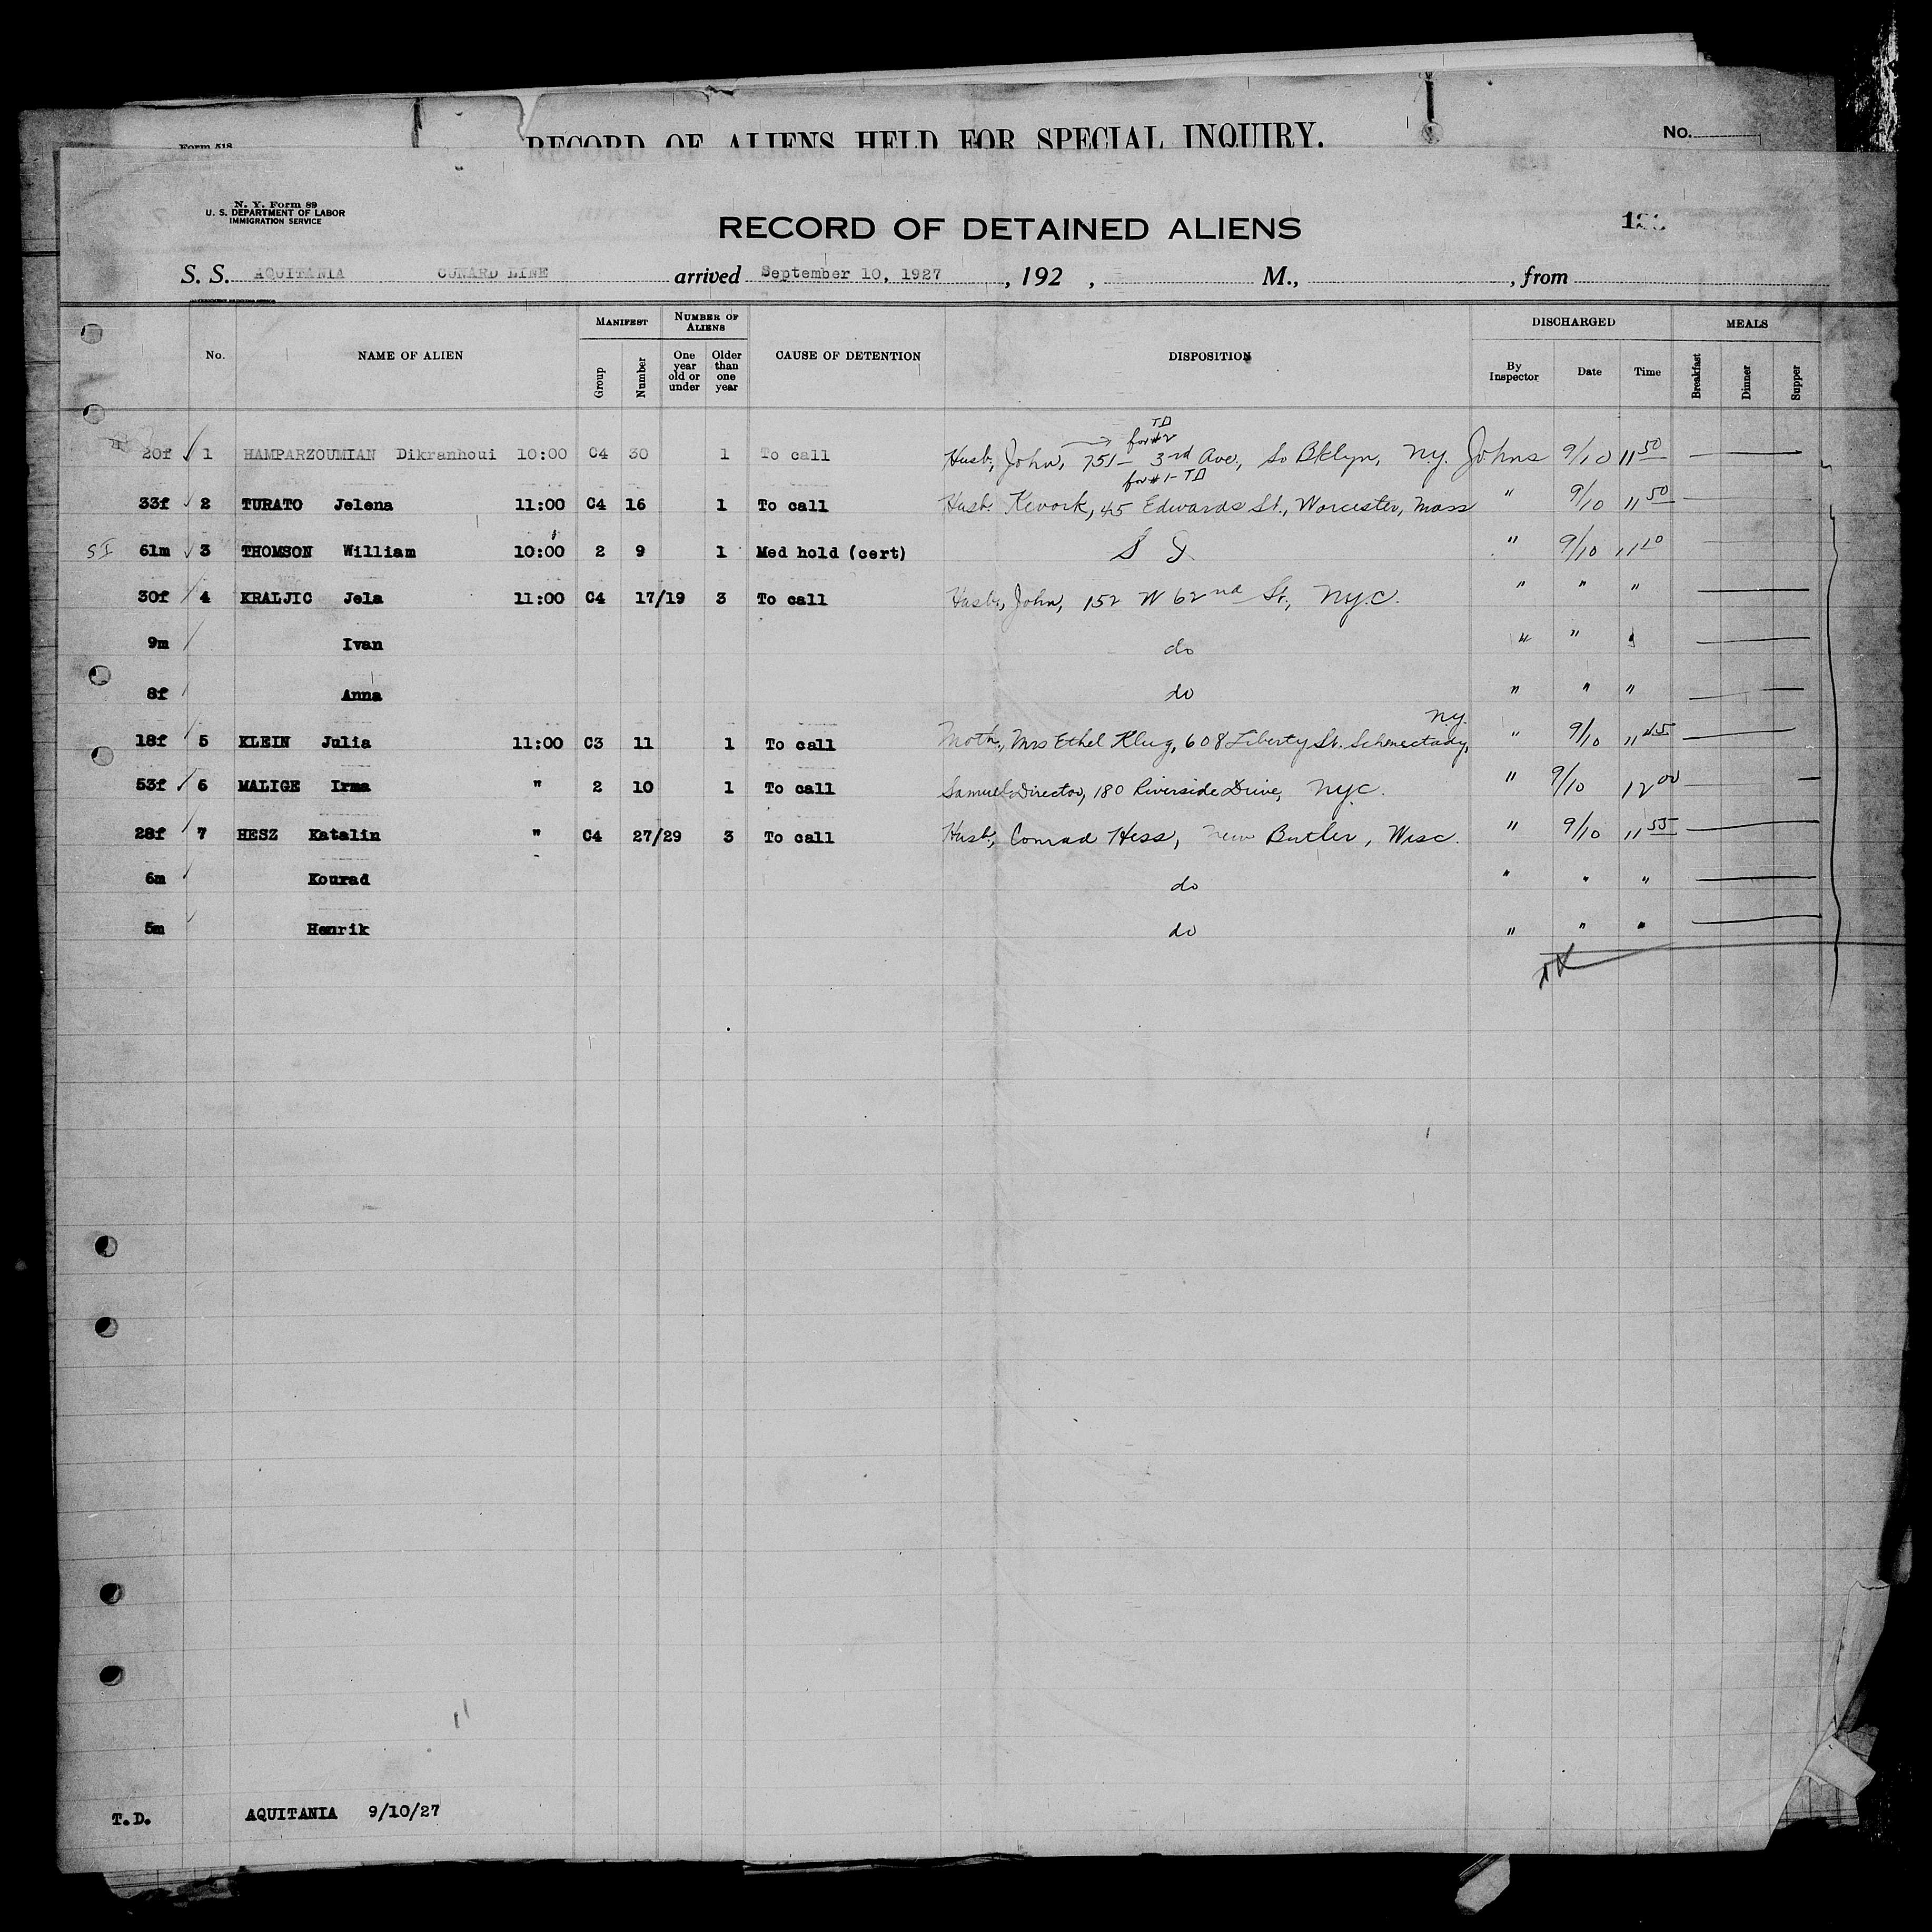 Form 518
RECORD OF ALIENS HELD FOR SPECIAL INQUIRY.
No.
N. Y. Form 89
U. S. DEPARTMENT OF LABOR
IMMIGRATION SERVICE
RECORD OF DETAINED ALIENS
S. S. AQUITANIA CUNARD LINE arrived September 10, 1927, 192 , M., , from
GOVERNMENT PRINTING OFFICE
No. NAME OF ALIEN MANIFEST Group Number NUMBER OF ALIENS One year old or under Older than one year CAUSE OF DETENTION DISPOSITION DISCHARGED By Inspector Date Time MEALS Breakfast Dinner Supper
TD
for #2
20f 1 HAMPARZOUMIAN Dikranhoui 10:00 C4 30 1 To call Husb, John, 751- 3rd Ave, So Bklyn, N.Y. Johns 9/10 11 50
for #1- TD
33f 2 TURATO Jelena 11:00 C4 16 1 To call Husb. Kevork, 45 Edwards St., Worcester, Mass " 9/10 11 50
SI 61m 3 THOMSON William 10:00 2 9 1 Med hold (cert) S I " 9/10 11 10
30f 4 KRALJIC Jela 11:00 C4 17/19 3 To call Husb, John, 152 W 62nd St., N.Y.C. " " "
9m Ivan do " " "
8f Anna do " " "
N.Y.
18f 5 KLEIN Julia 11:00 C3 11 1 To call Moth, Mrs Ethel Klug, 608 Liberty St. Schenectady, " 9/10 11 45
53f 6 MALIGE Irma " 2 10 1 To call Samuel Director, 180 Riverside Drive, N.Y.C. " 9/10 12 00
28f 7 HESZ Katalin " C4 27/29 3 To call Husb, Conrad Hess, New Butler, Wisc. " 9/10 11 55
6m Kourad do " " "
5m Henrik do " " "
T.D. AQUITANIA 9/10/27